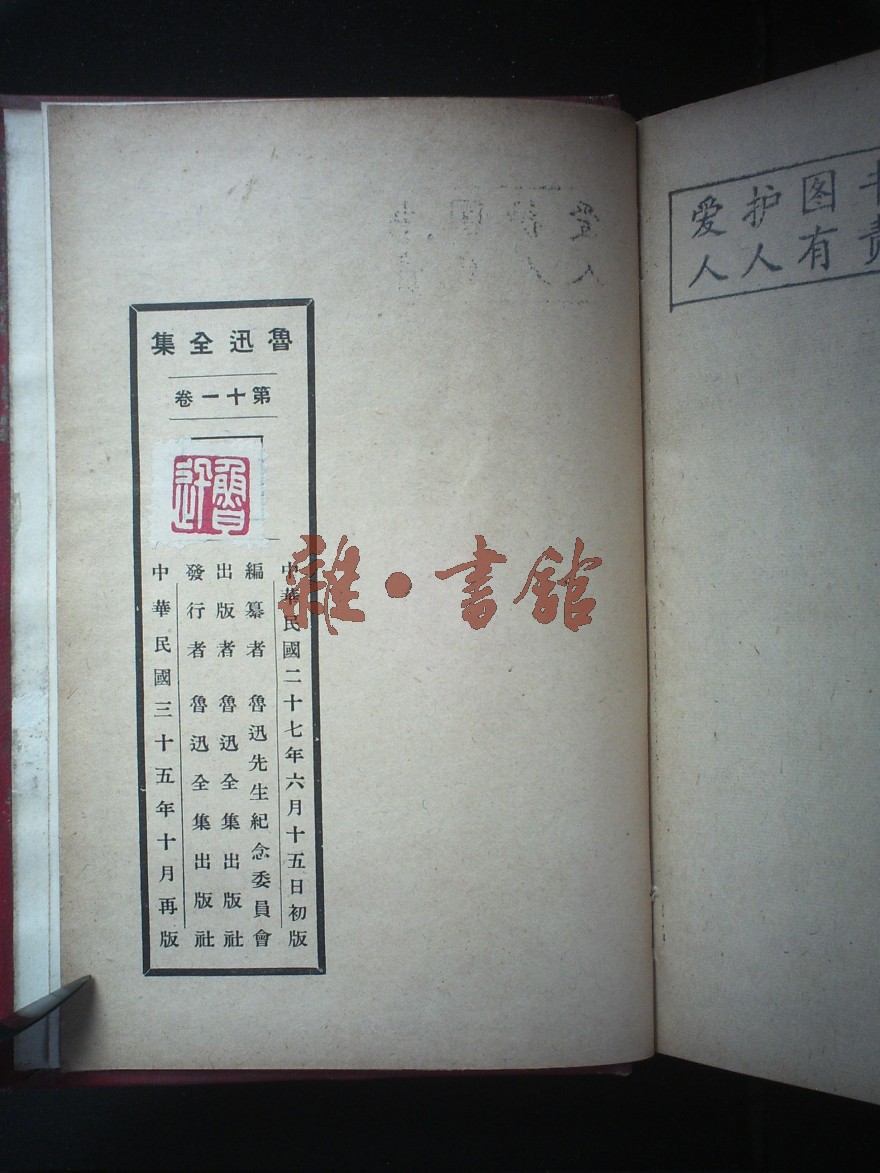 魯迅全集
第十一卷
魯迅
中華民國二十七年六月十五日初版
編纂者 魯迅先生紀念委員會
出版者 魯迅全集出版社
發行者 魯迅全集出版社
中華民國三十五年十月再版
雜·書館
爱护图
人人有责